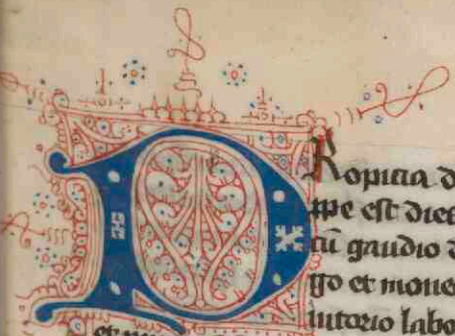 PRopicia d
ppe est dies
cū gaudio d
go et mone
iutorio labo